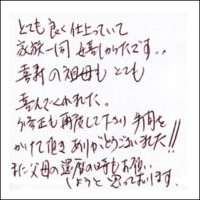 とても良く仕上っていて
家族一同 嬉しかったです。
喜寿の祖母も とても
喜んでくれました。
修正も再度して下さり 手間を
かけて頂き ありがとうございました!!
また父母の還暦の時もお願い
しようと 思っております。